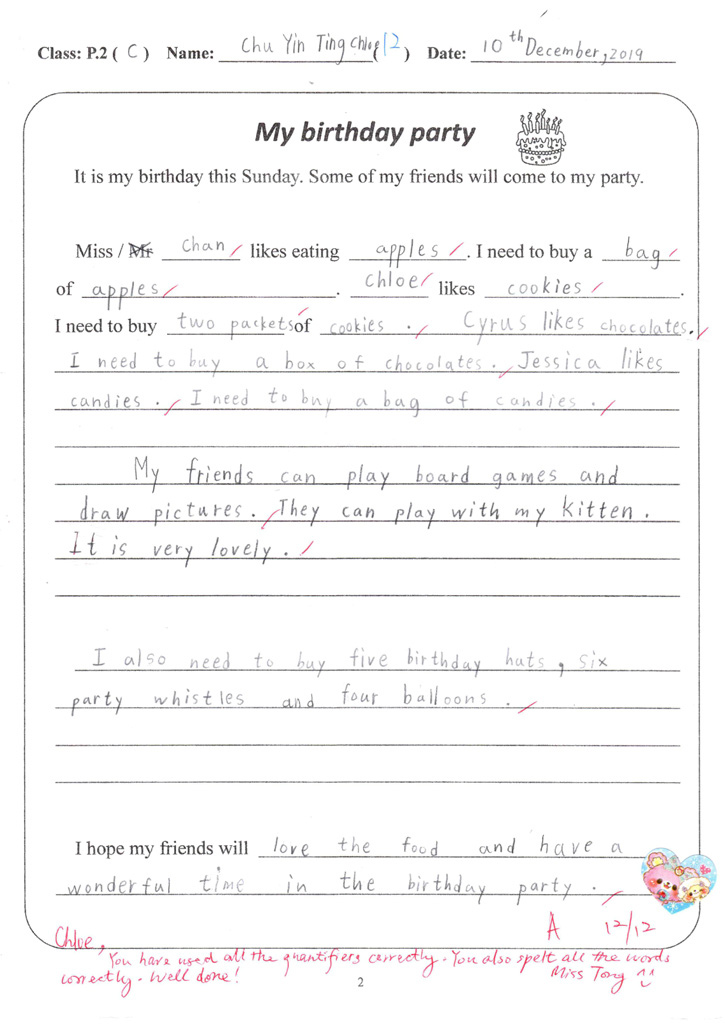 Class: P.2 ( C ) Name: Chu Yin Ting Chloe (12) Date: 10th December, 2019
My birthday party
It is my birthday this Sunday. Some of my friends will come to my party.
Miss / Mr Chan likes eating apples. I need to buy a bag
of apples. Chloe likes cookies.
I need to buy two packets of cookies. Cyrus likes chocolates.
I need to buy a box of chocolates. Jessica likes
candies. I need to buy a bag of candies.
My friends can play board games and
draw pictures. They can play with my kitten.
It is very lovely.
I also need to buy five birthday hats, six
party whistles and four balloons.
I hope my friends will love the food and have a
wonderful time in the birthday party.
A 12/12
Chloe,
You have used all the quantifiers correctly. You also spelt all the words
correctly. Well done! Miss Tong
2